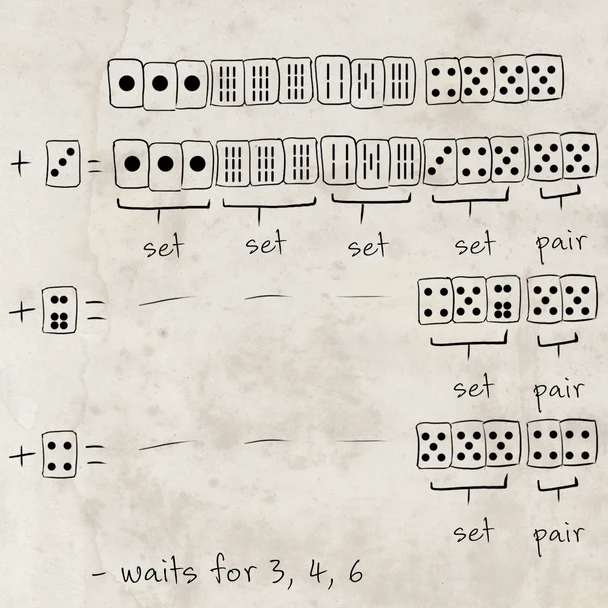 + =
set set set set pair
+ =
set pair
+ =
set pair
- waits for 3, 4, 6